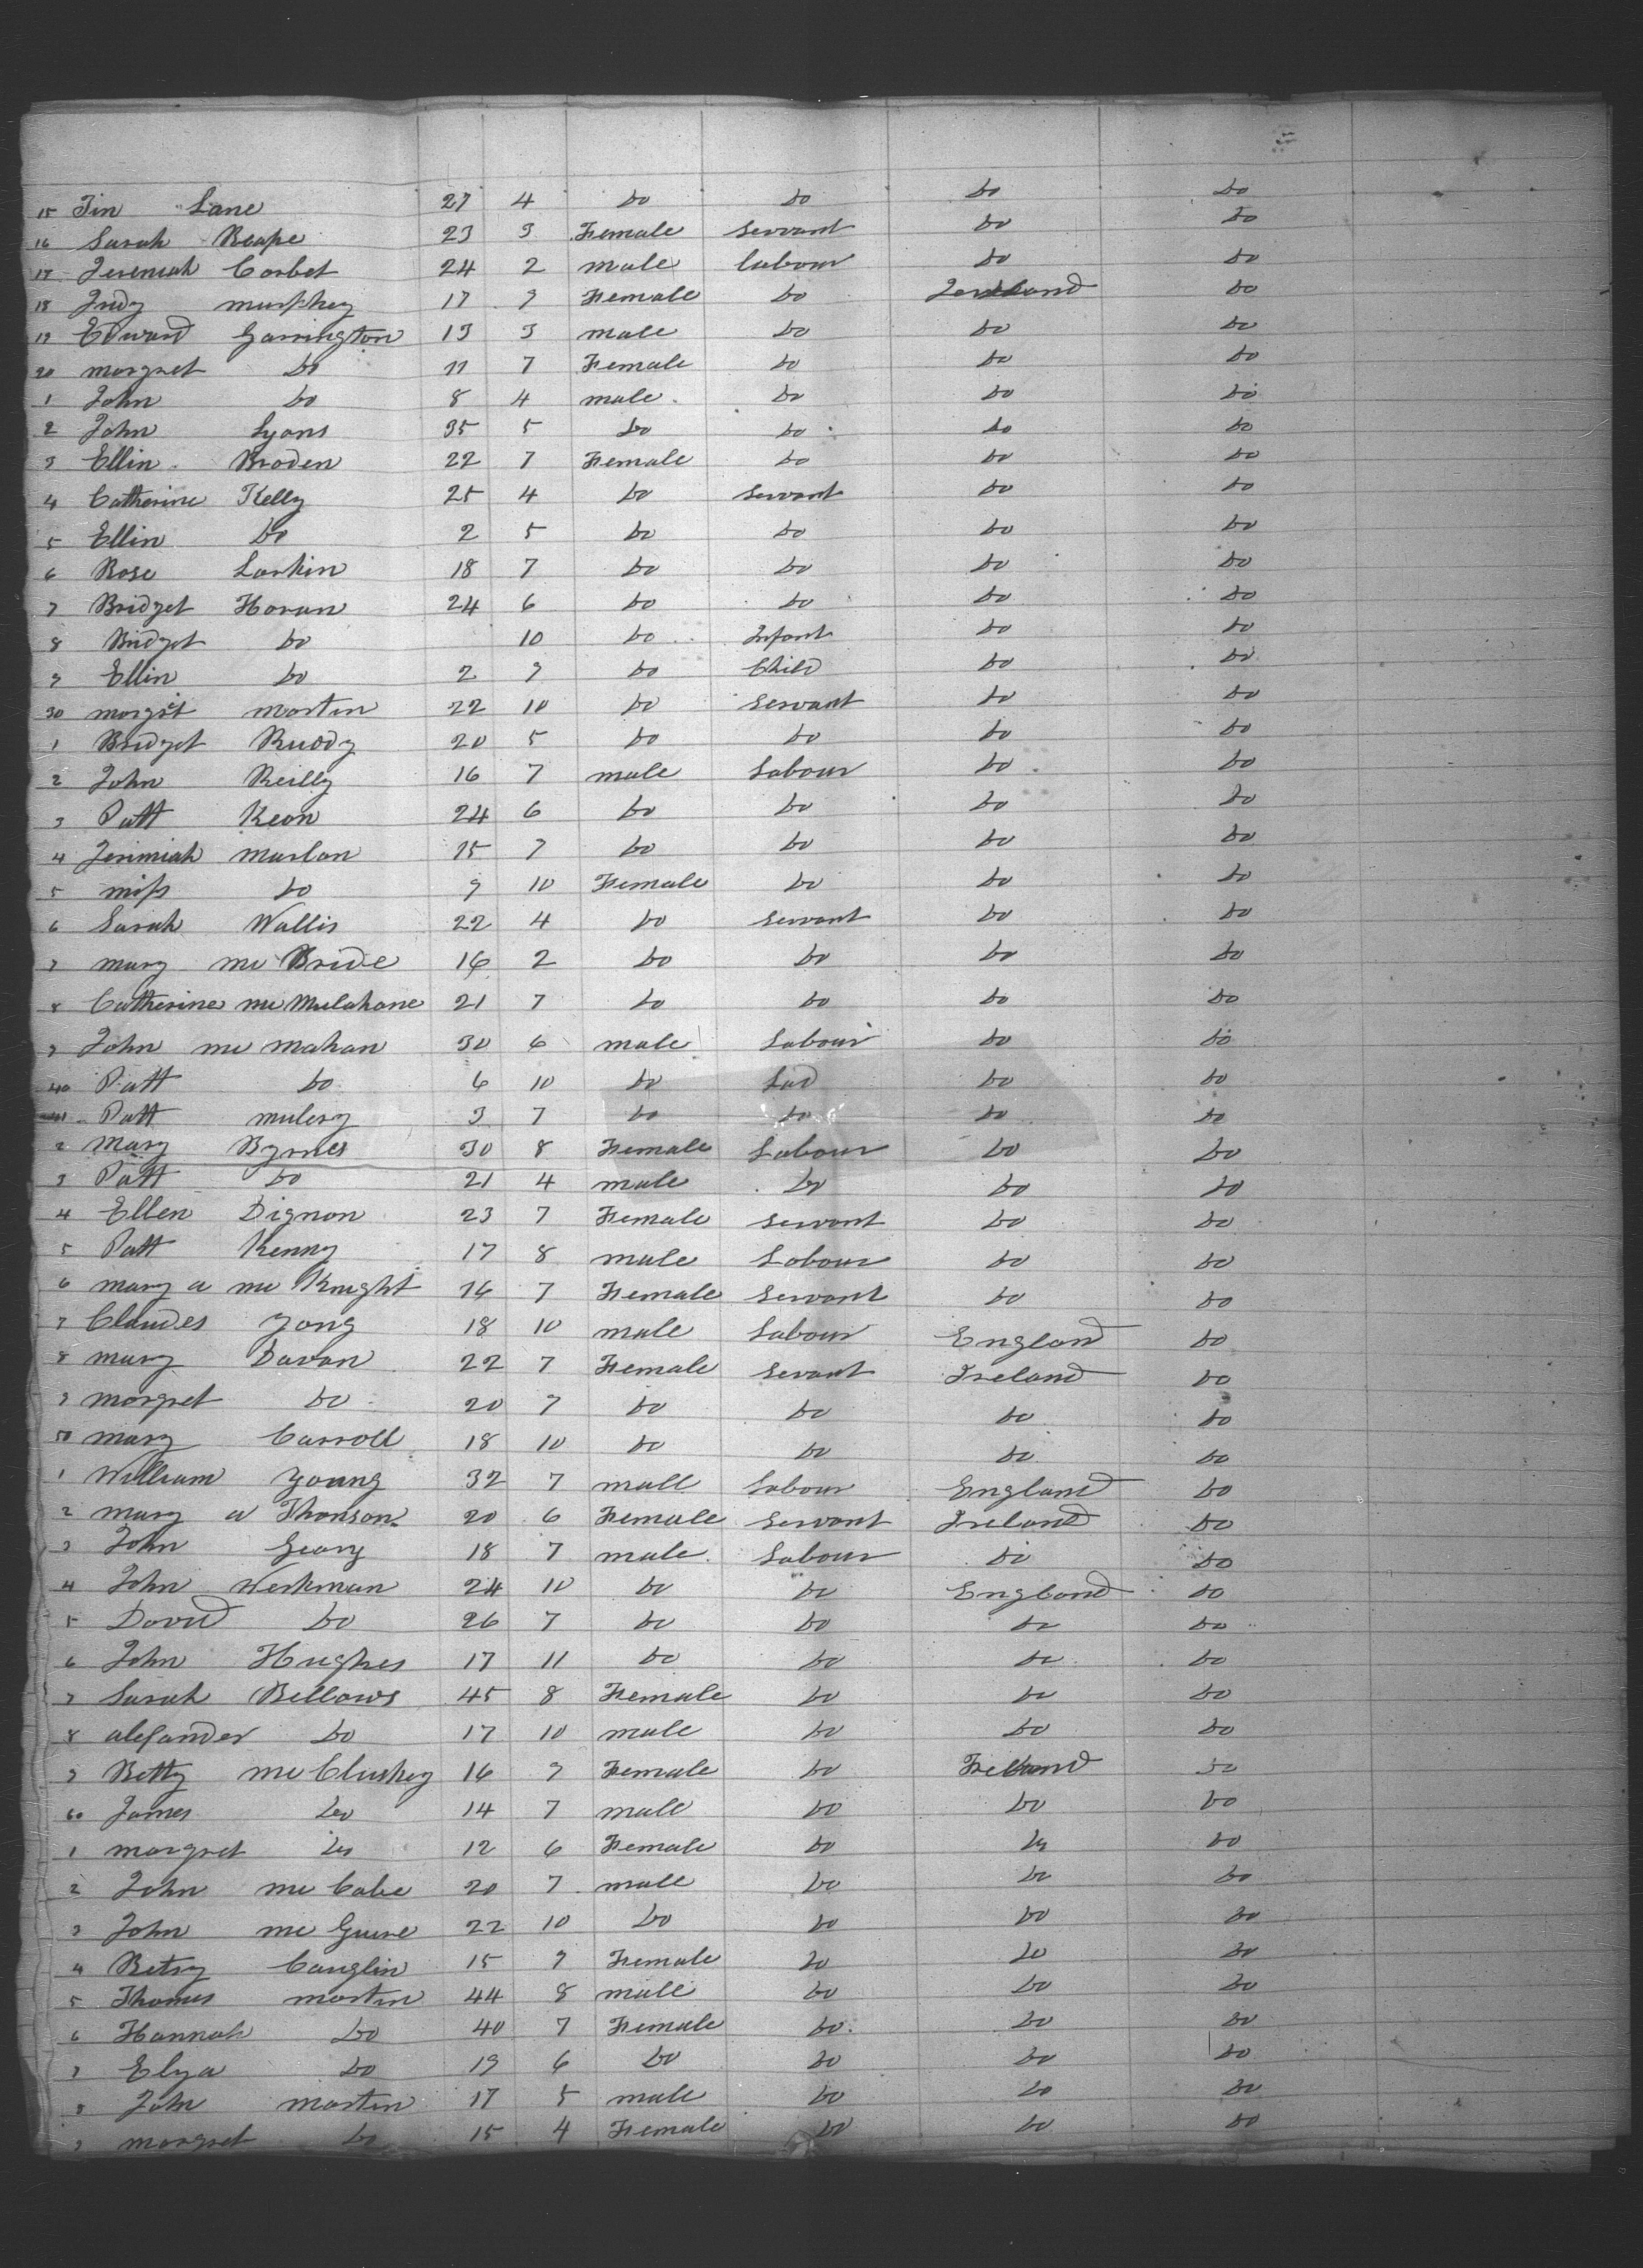 15 Jin Lane 27 4 Do Do Do Do
16 Sarah Reape 23 9 Female Servant Do Do
17 Jeremiah Corbet 24 2 male labour Do Do
18 Judy murphey 17 9 Female Do Do
19 Edward Garrington 19 9 male Do Do Do
20 margret Do 11 7 Female Do Do Do
1 John Do 8 4 male Do Do Do
2 John Lyons 35 5 Do Do Do Do
3 Ellin Broden 22 7 Female Do Do Do
4 Catherine Kelly 25 4 Do Servant Do Do
5 Ellin Do 2 5 Do Do Do Do
6 Rose Larkin 18 7 Do Do Do Do
7 Bridget Horan 24 6 Do Do Do Do
8 Bridget Do 10 Do Infant Do Do
9 Ellin Do 2 9 Do Child Do Do
30 margst martin 22 10 Do Servant Do Do
1 Bridget Ruddy 20 5 Do Do Do Do
2 John Reilly 16 7 male Labour Do Do
3 Patt Keon 24 6 Do Do Do Do
4 Jerimiah marlan 15 7 Do Do Do Do
5 miss Do 9 10 Female Do Do Do
6 Sarah Wallis 22 4 Do Servant Do Do
7 mary mc Bride 16 2 Do Do Do Do
8 Catherine mc Mulahane 21 7 Do Do Do Do
9 John mc mahan 30 6 male Labour Do Do
40 Patt Do 6 10 Do Lad Do Do
41 Patt mulery 3 7 Do Do Do Do
2 Mary Byrnes 30 8 Female Labour Do Do
3 Patt Do 21 4 male Do Do Do
4 Ellen Dignon 23 7 Female Servant Do Do
5 Patt Kenny 17 8 male Labour Do Do
6 mary a mc Knight 16 7 Female Servant Do Do
7 Claudes yong 18 10 male Labour England Do
8 mary Davan 22 7 Female Servant Ireland Do
9 margret Do 20 9 Do Do Do Do
50 mary Carroll 18 10 Do Do Do Do
1 William young 32 7 mall Labour England Do
2 mary a Thonson 20 6 Female Servant Ireland Do
3 John Geary 18 7 male Labour Do Do
4 John Werkman 24 10 Do Do England Do
5 David Do 26 7 Do Do Do Do
6 John Hughes 17 11 Do Do Do Do
7 Sarah Bellows 45 8 Female Do Do Do
8 alexander Do 17 10 male Do Do Do
9 Betty mc Cluskey 16 9 Female Do Ireland Do
60 James Do 14 7 male Do Do Do
1 margret Do 12 6 Female Do Do Do
2 John mc Cabe 20 7 male Do Do Do
3 John mc Guire 22 10 Do Do Do Do
4 Betsy Cauglin 15 9 Female Do Do Do
5 Thomas martin 44 8 male Do Do Do
6 Hannah Do 40 7 Female Do Do Do
7 Elza Do 19 6 Do Do Do Do
8 John martin 17 5 male Do Do Do
9 margret Do 15 4 Female Do Do Do